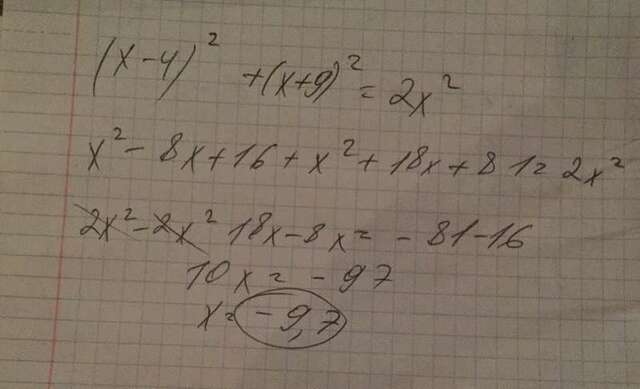 (x-4)² +(x+9)² = 2x²
x² - 8x + 16 + x² + 18x + 81 = 2x²
2x² - 2x² 18x - 8x = - 81 - 16
10x = - 97
x = - 9,7